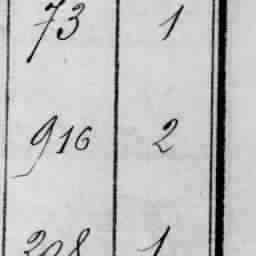 73 1
916 2
208 1